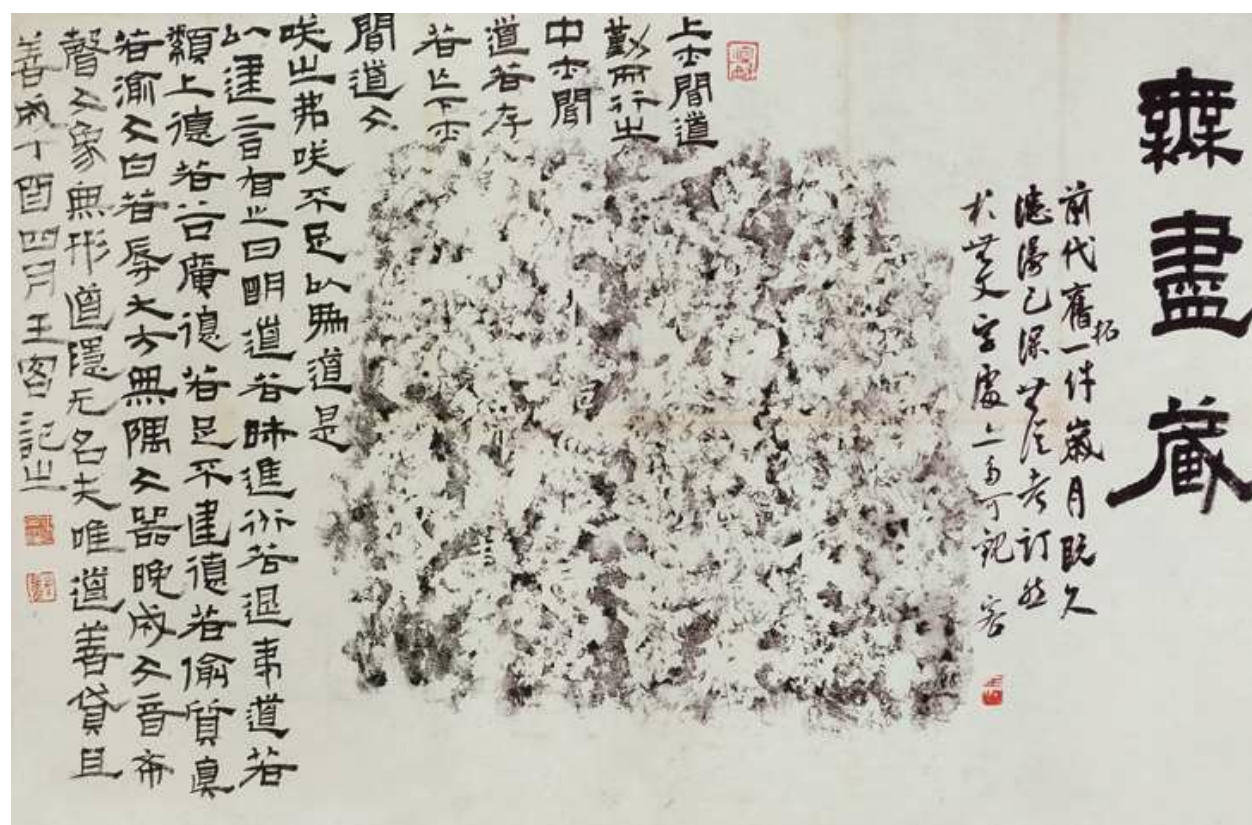 無盡藏
前代舊拓一件歲月既久
漶漫已深無從考訂然
於無文字處亦自可觀 客
上士聞道
勤而行之
中士聞
道若存
若亡下士
聞道大
咲之弗咲不足以為道是
以建言有之曰明道若昧進道若退夷道若
纇上德若谷廣德若足不建德若偷質真
若渝大白若辱大方無隅大器晚成大音希
聲大象無形道隱无名夫唯道善貸且
善成丁酉四月王客記之